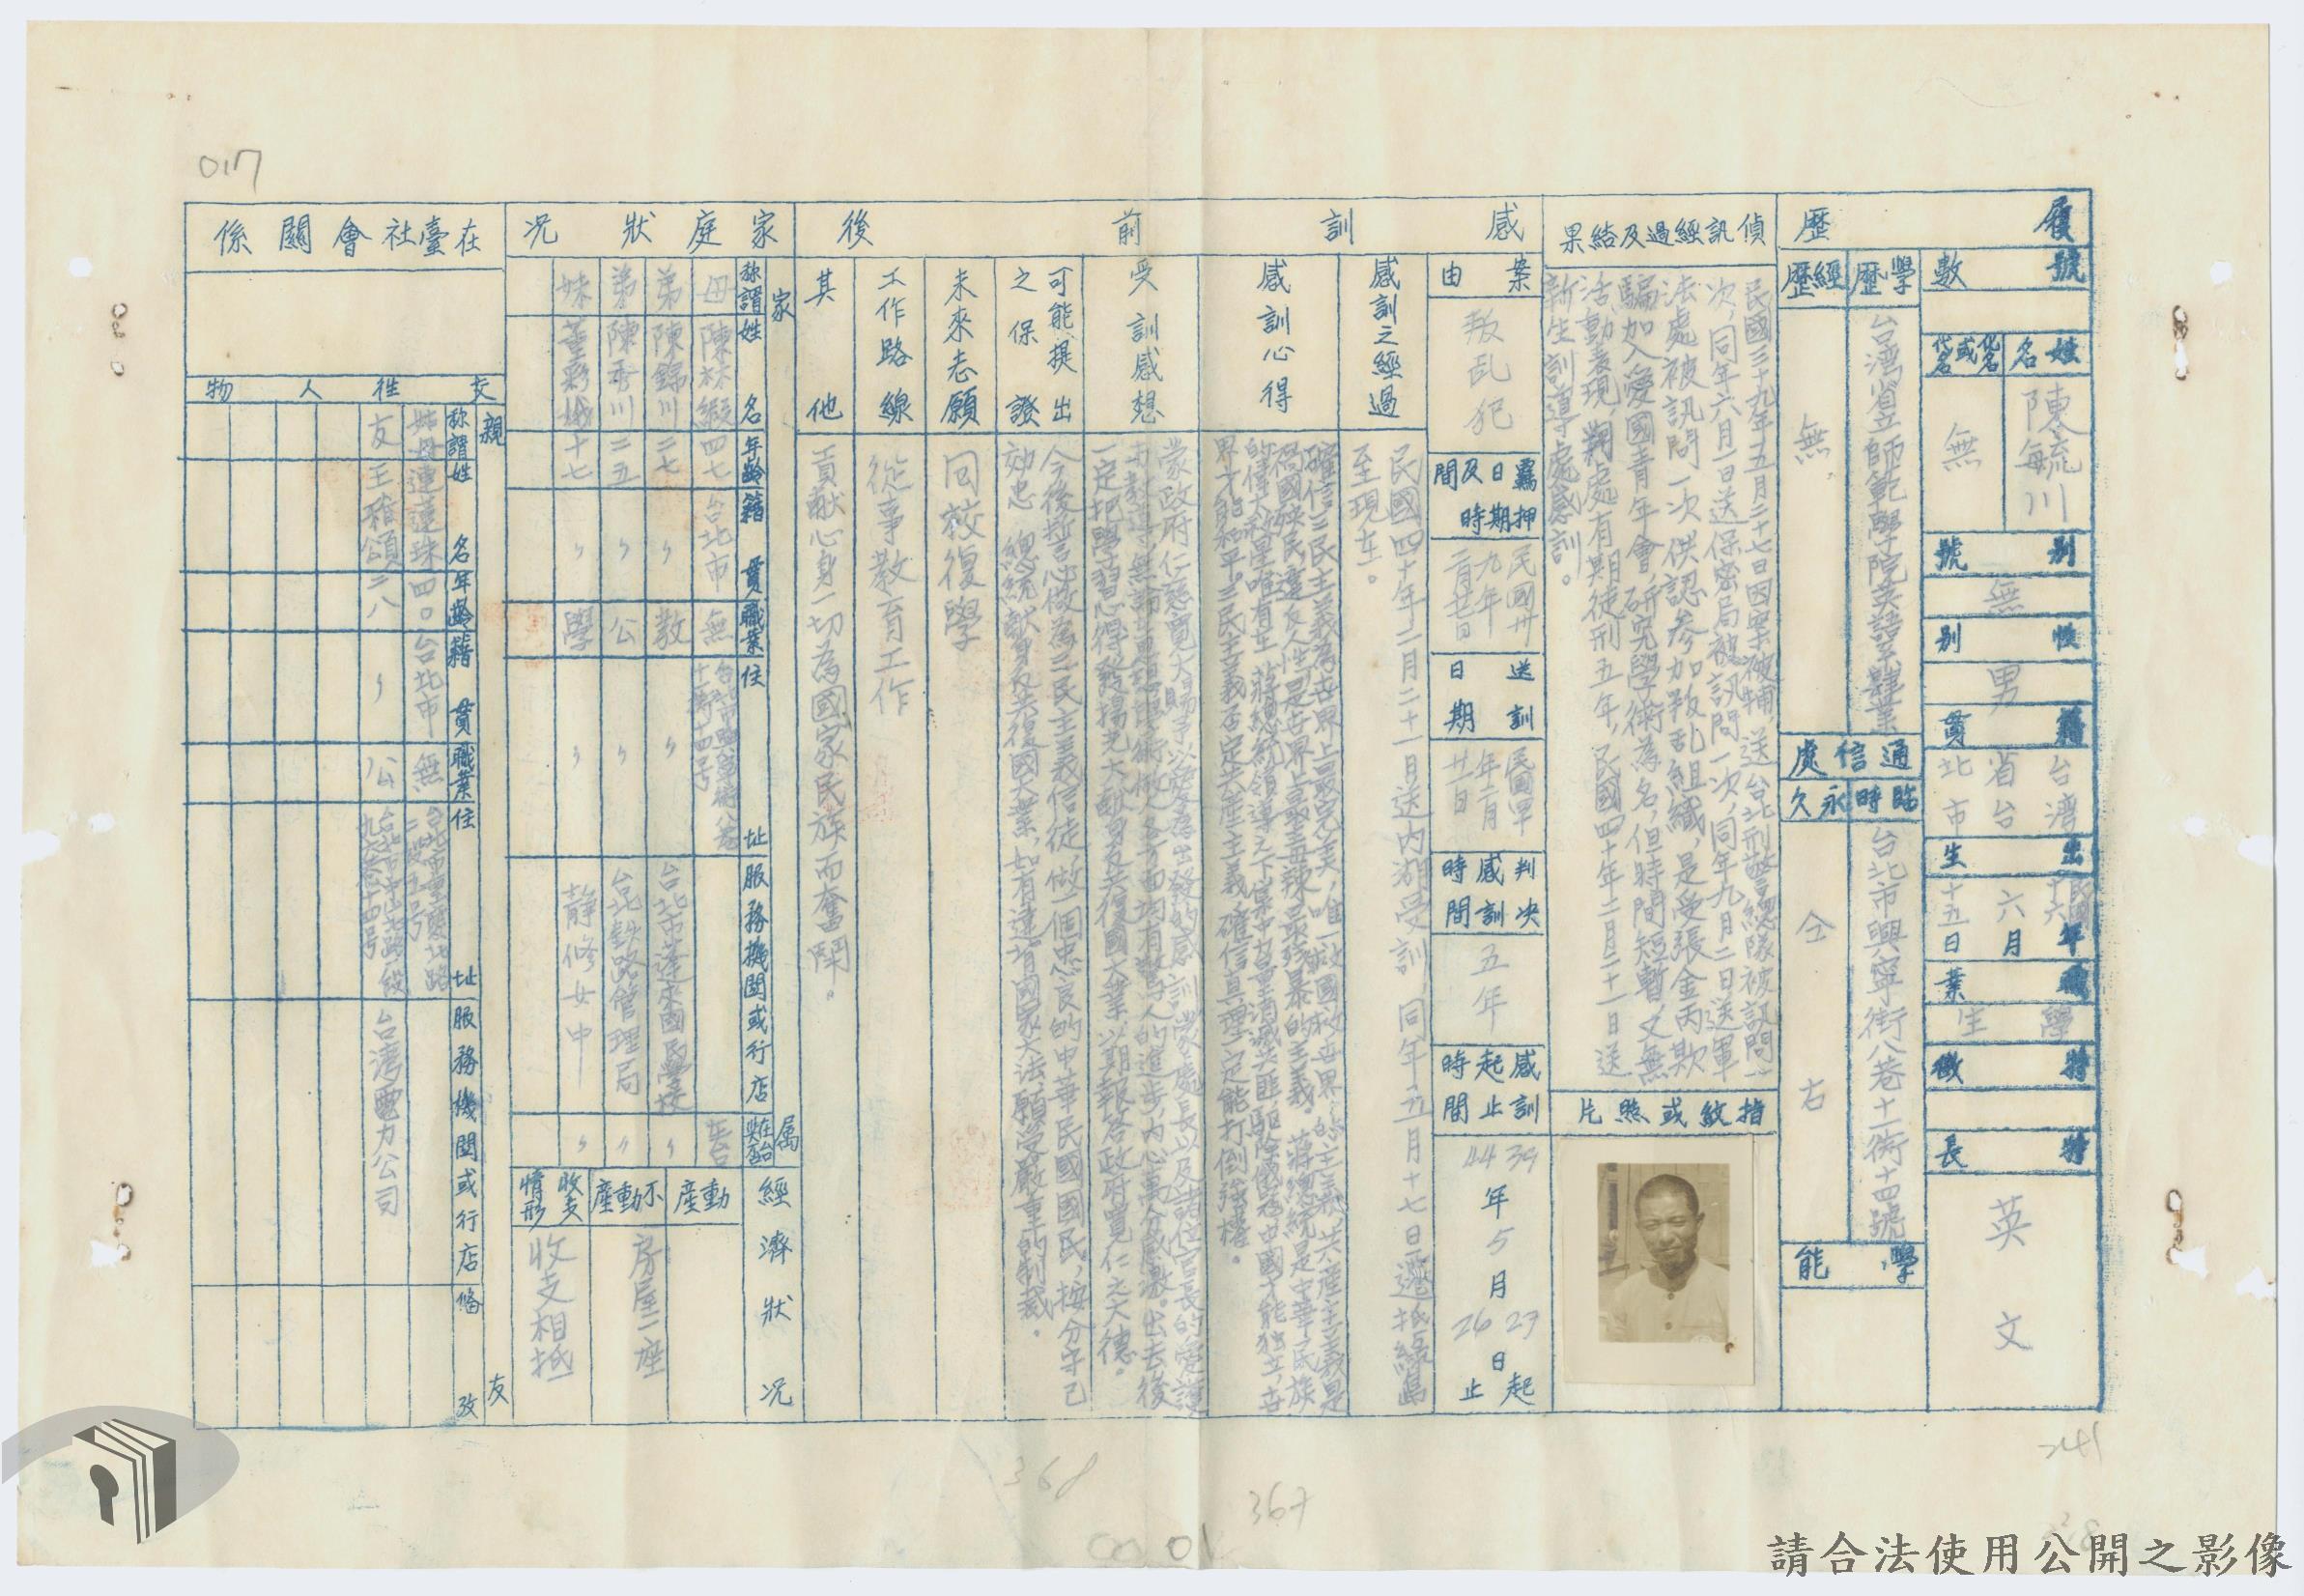 017
履歷
號數
姓名
陳毓川
化名或代名
無
別號
無
性別
男
籍貫
台湾省台北市
出生
民國十六年六月十五日
職業
學生
特徵
特長
英文
學歷
台湾省立師範學院英語系肄業
經歷
無
通信處
臨時
台北市興寧街八巷十一衖十四號
永久
仝右
學能
偵訊經過及結果
民國三十九年五月二十七日因案被捕,送台北刑警總隊被訊問一
次,同年六月一日送保密局被訊問一次,同年九月二日送軍
法處被訊問一次供認参加叛乱組織,是受張金丙欺
騙加入愛國青年會,研究學術為名,但時間短暫,又無
活動表現,判處有期徒刑五年,民國四十年二月二十一日送
新生訓導處感訓。
指紋或照片
感訓前後
案由
叛乱犯
羈押日期及時間
民國卅九年
送訓日期
民國四十年二月廿一日
判決感訓時間
五年
感訓起止時間
39年5月27日起
44 26 止
感訓之經過
民國四十年二月二十一日送內湖受訓,同年五月十七日遞抵綠島
至現在。
感訓心得
確信三民主義為世界上最完美,唯一救國救世界的主義,共産主義是
禍國殃民違反人性,是世界上最毒辣最殘暴的主義。蔣總統是中華民族
的偉大救星,唯有在 蔣總統領導之下集中力量消滅共匪驅除俄寇中國才能独立,世
界才能和平,三民主義否定共産主義,確信真理一定能打倒強權。
受訓感想
蒙政府仁慈寬大賜予以
一定把學習心得發揚光大献身反共復國大業,以期報答政府寬仁之大德。
可能提出之保證
今後誓心做為三民主義信徒,做一個忠良的中華民國國民,按分守己
効忠 總統献身反共復國大業,如有違背國家大法,願受嚴重的制裁。
未來志願
回校復學
工作路線
從事教育工作
其他
貢献心身一切為國家民族而奮鬥。
家庭狀况
家屬
称謂 姓名 年齡 籍貫 職業 住址 服務機關或行店 是否在台
母 陳林緞 四七 台北市 無 台北市興寧街八巷十一衖十四号
弟 陳錦川 二七 〃 教 〃 台北市蓬來國民學校 〃
弟 陳秀川 二五 〃 公 〃 台北鉄路管理局 〃
妹 董彩娥 十七 〃 學 〃 静修女中 〃
經濟狀况
動產
不動產
房屋一座
收支情形
收支相抵
在臺社會關係
交往人物
親友
称謂 姓名 年齡 籍貫 職業 住址 服務機關或行店 備攷
姑母 連連珠 四〇 台北市 無
友 王雅頌 二八 〃 公 台湾電力公司
368
367
241
請合法使用公開之影像